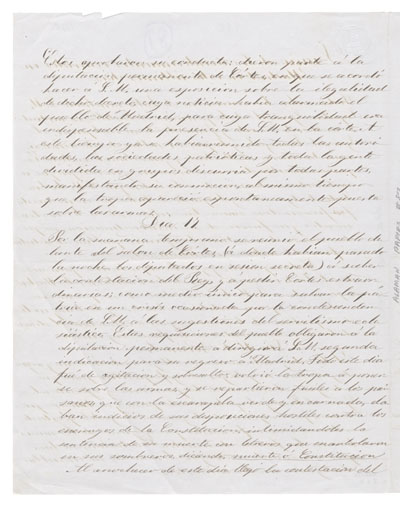 Estos aprobaron su conducta: dieron parte á la
diputacion permanente de Córtes, en que se acordó
hacer á S.M. una exposicion sobre la ilegalidad
de dicho decreto, cuya noticia habia alarmado el
pueblo de Madrid, para cuya tranquilidad era
indispensable la presencia de S.M. en la corte. A
este tiempo ya habian todas las autori-
dades, las sociedades patrióticas y toda la gente
dividida en grupos discurria por todas partes,
manifestando su conmocion, al mismo tiempo
que la tropa aparecia espontaneamente puesta
sobre las armas.
Dia 17
Por la mañana temprano se reunió el pueblo de-
lante del salon de Córtes, (á donde habian pasado
la noche los diputados en sesion secreta) á saber
la contestacion del Rey, y á pedir Córtes estraor-
dinarias, como medio único para salvar la pá-
tria en una crisis ocasionada por la condescenden-
cia de S.M. á las sugestiones del
Estos del pueblo obligaron á la
diputacion permanente á dirigir á S.M. segunda
indicacion para su regreso á Madrid. Todo este dia
fué de agitacion y volvió la tropa á poner-
se sobre las armas, y se repartieron fusiles á
que con la escarapela verde y encarnada, da-
ban indicios de sus disposiciones hostiles contra los
enemigos de la Constitucion, intimidandoles la
sentencia de su muerte con letreros que
en sus sombreros diciendo muerte ó Constitucion
Al anochecer de este dia llegó la contestacion del